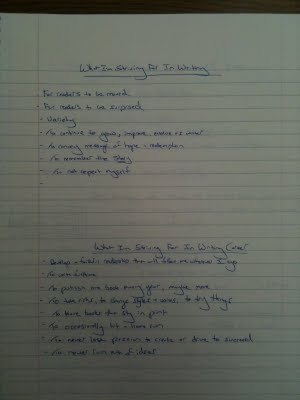 What Im Striving For In Writing
- For readers to be moved
- For readers to be surprised
- Variety
- To continue to grow, improve, evolve as writer
- To convey messages of hope + redemption
- To remember the story
- To not repeat myself
-
What Im Striving For In Writing Career
- Develop a faithful readership that will follow me wherever I go
- To write fulltime
- To publish one book every year, maybe more
- To take risks, to change styles + voices, to try things
- To leave books that stay in print
- To occasionally hit a home run
- To never lose passion to create or drive to succeed
- To never run out of ideas